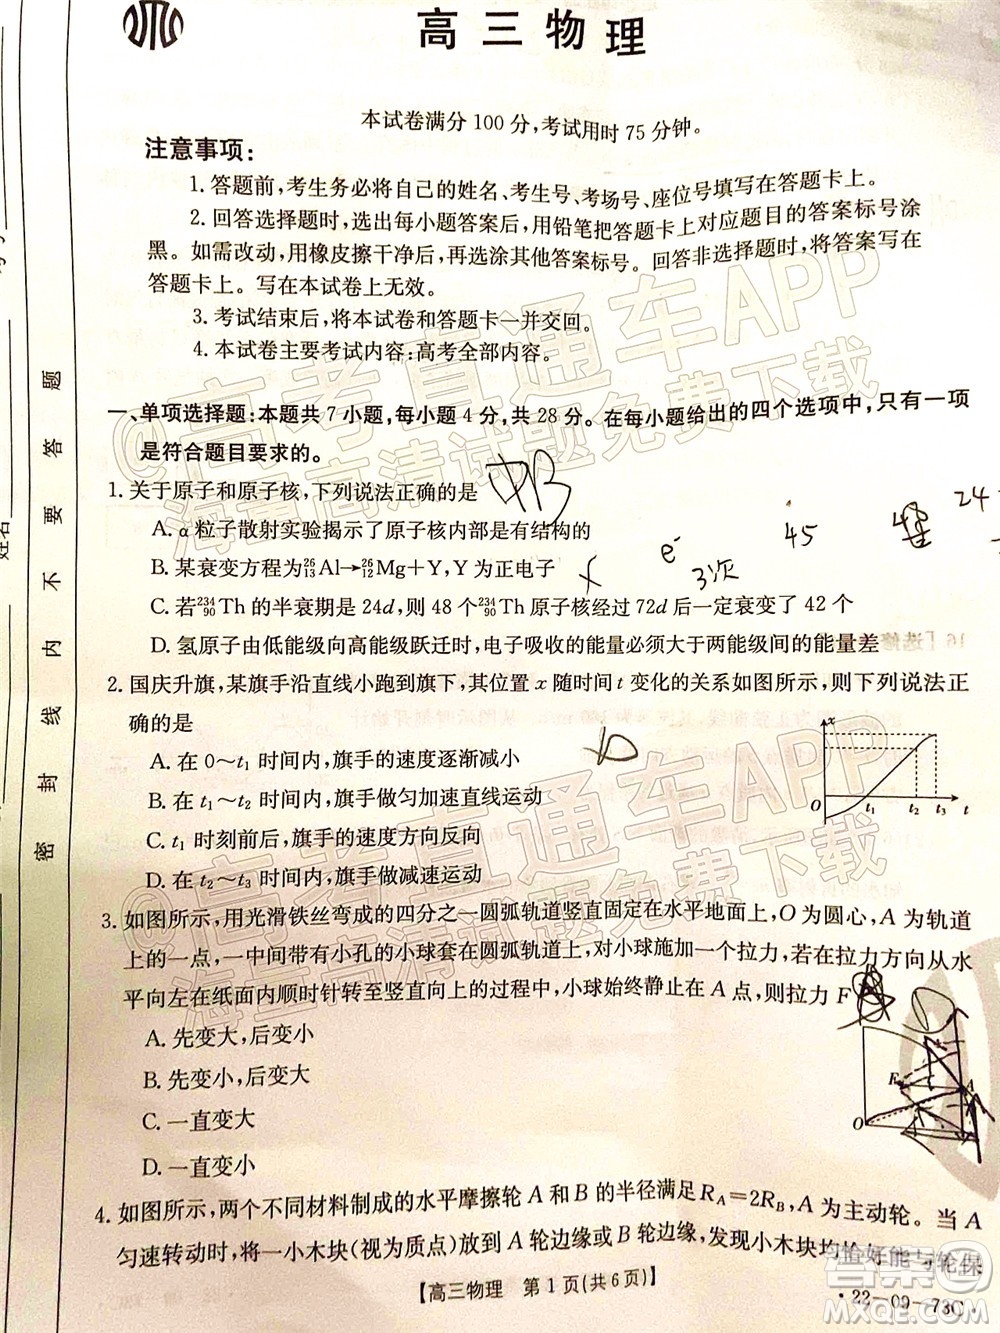 高三物理
本试卷满分100分,考试用时75分钟。
注意事项:
1.答题前,考生务必将自己的姓名、考生号、考场号、座位号填写在答题卡上。
2.回答选择题时,选出每小题答案后,用铅笔把答题卡上对应题目的答案标号涂
黑。如需改动,用橡皮擦干净后,再选涂其他答案标号。回答非选择题时,将答案写在
答题卡上。写在本试卷上无效。
3.考试结束后,将本试卷和答题卡一并交回。
4.本试卷主要考试内容:高考全部内容。
一、单项选择题:本题共7小题,每小题4分,共28分。在每小题给出的四个选项中,只有一项
是符合题目要求的。
1.关于原子和原子核,下列说法正确的是
A.α粒子散射实验揭示了原子核内部是有结构的
B.某衰变方程为²⁶₁₃Al→²⁶₁₂Mg+Y,Y为正电子
C.若²³⁴₉₀Th的半衰期是24d,则48个²³⁴₉₀Th原子核经过72d后一定衰变了42个
D.氢原子由低能级向高能级跃迁时,电子吸收的能量必须大于两能级的能量差
e⁻
3次
45
48
24
2.国庆升旗,某旗手沿直线小跑到旗下,其位置x随时间t变化的关系如图所示,则下列说法正
确的是
A.在0~t₁时间内,旗手的速度逐渐减小
B.在t₁~t₂时间内,旗手做匀加速直线运动
C.t₁时刻前后,旗手的速度方向反向
D.在t₂~t₃时间内,旗手做减速运动
x
O t₁ t₂ t₃ t
3.如图所示,用光滑铁丝弯成的四分之一圆弧轨道竖直固定在水平地面上,O为圆心,A为轨道
上的一点,一中间带有小孔的小球套在圆弧轨道上,对小球施加一个拉力,若在拉力方向从水
平向左在纸面内顺时针转至竖直向上的过程中,小球始终静止在A点,则拉力F
A.先变大,后变小
B.先变小,后变大
C.一直变大
D.一直变小
F
A
O
4.如图所示,两个不同材料制成的水平摩擦轮A和B的半径满足R_A=2R_B,A为主动轮。当A
匀速转动时,将一小木块(视为质点)放到A轮边缘或B轮边缘,发现小木块均恰好能与轮保
【高三物理 第1页(共6页)】
·22-09-73C·
密封线内不要答题
姓名
@高考直通车APP
海量高清试题免费下载
@高考直通车APP
海量高清试题免费下载
答案圈
MXQE.COM